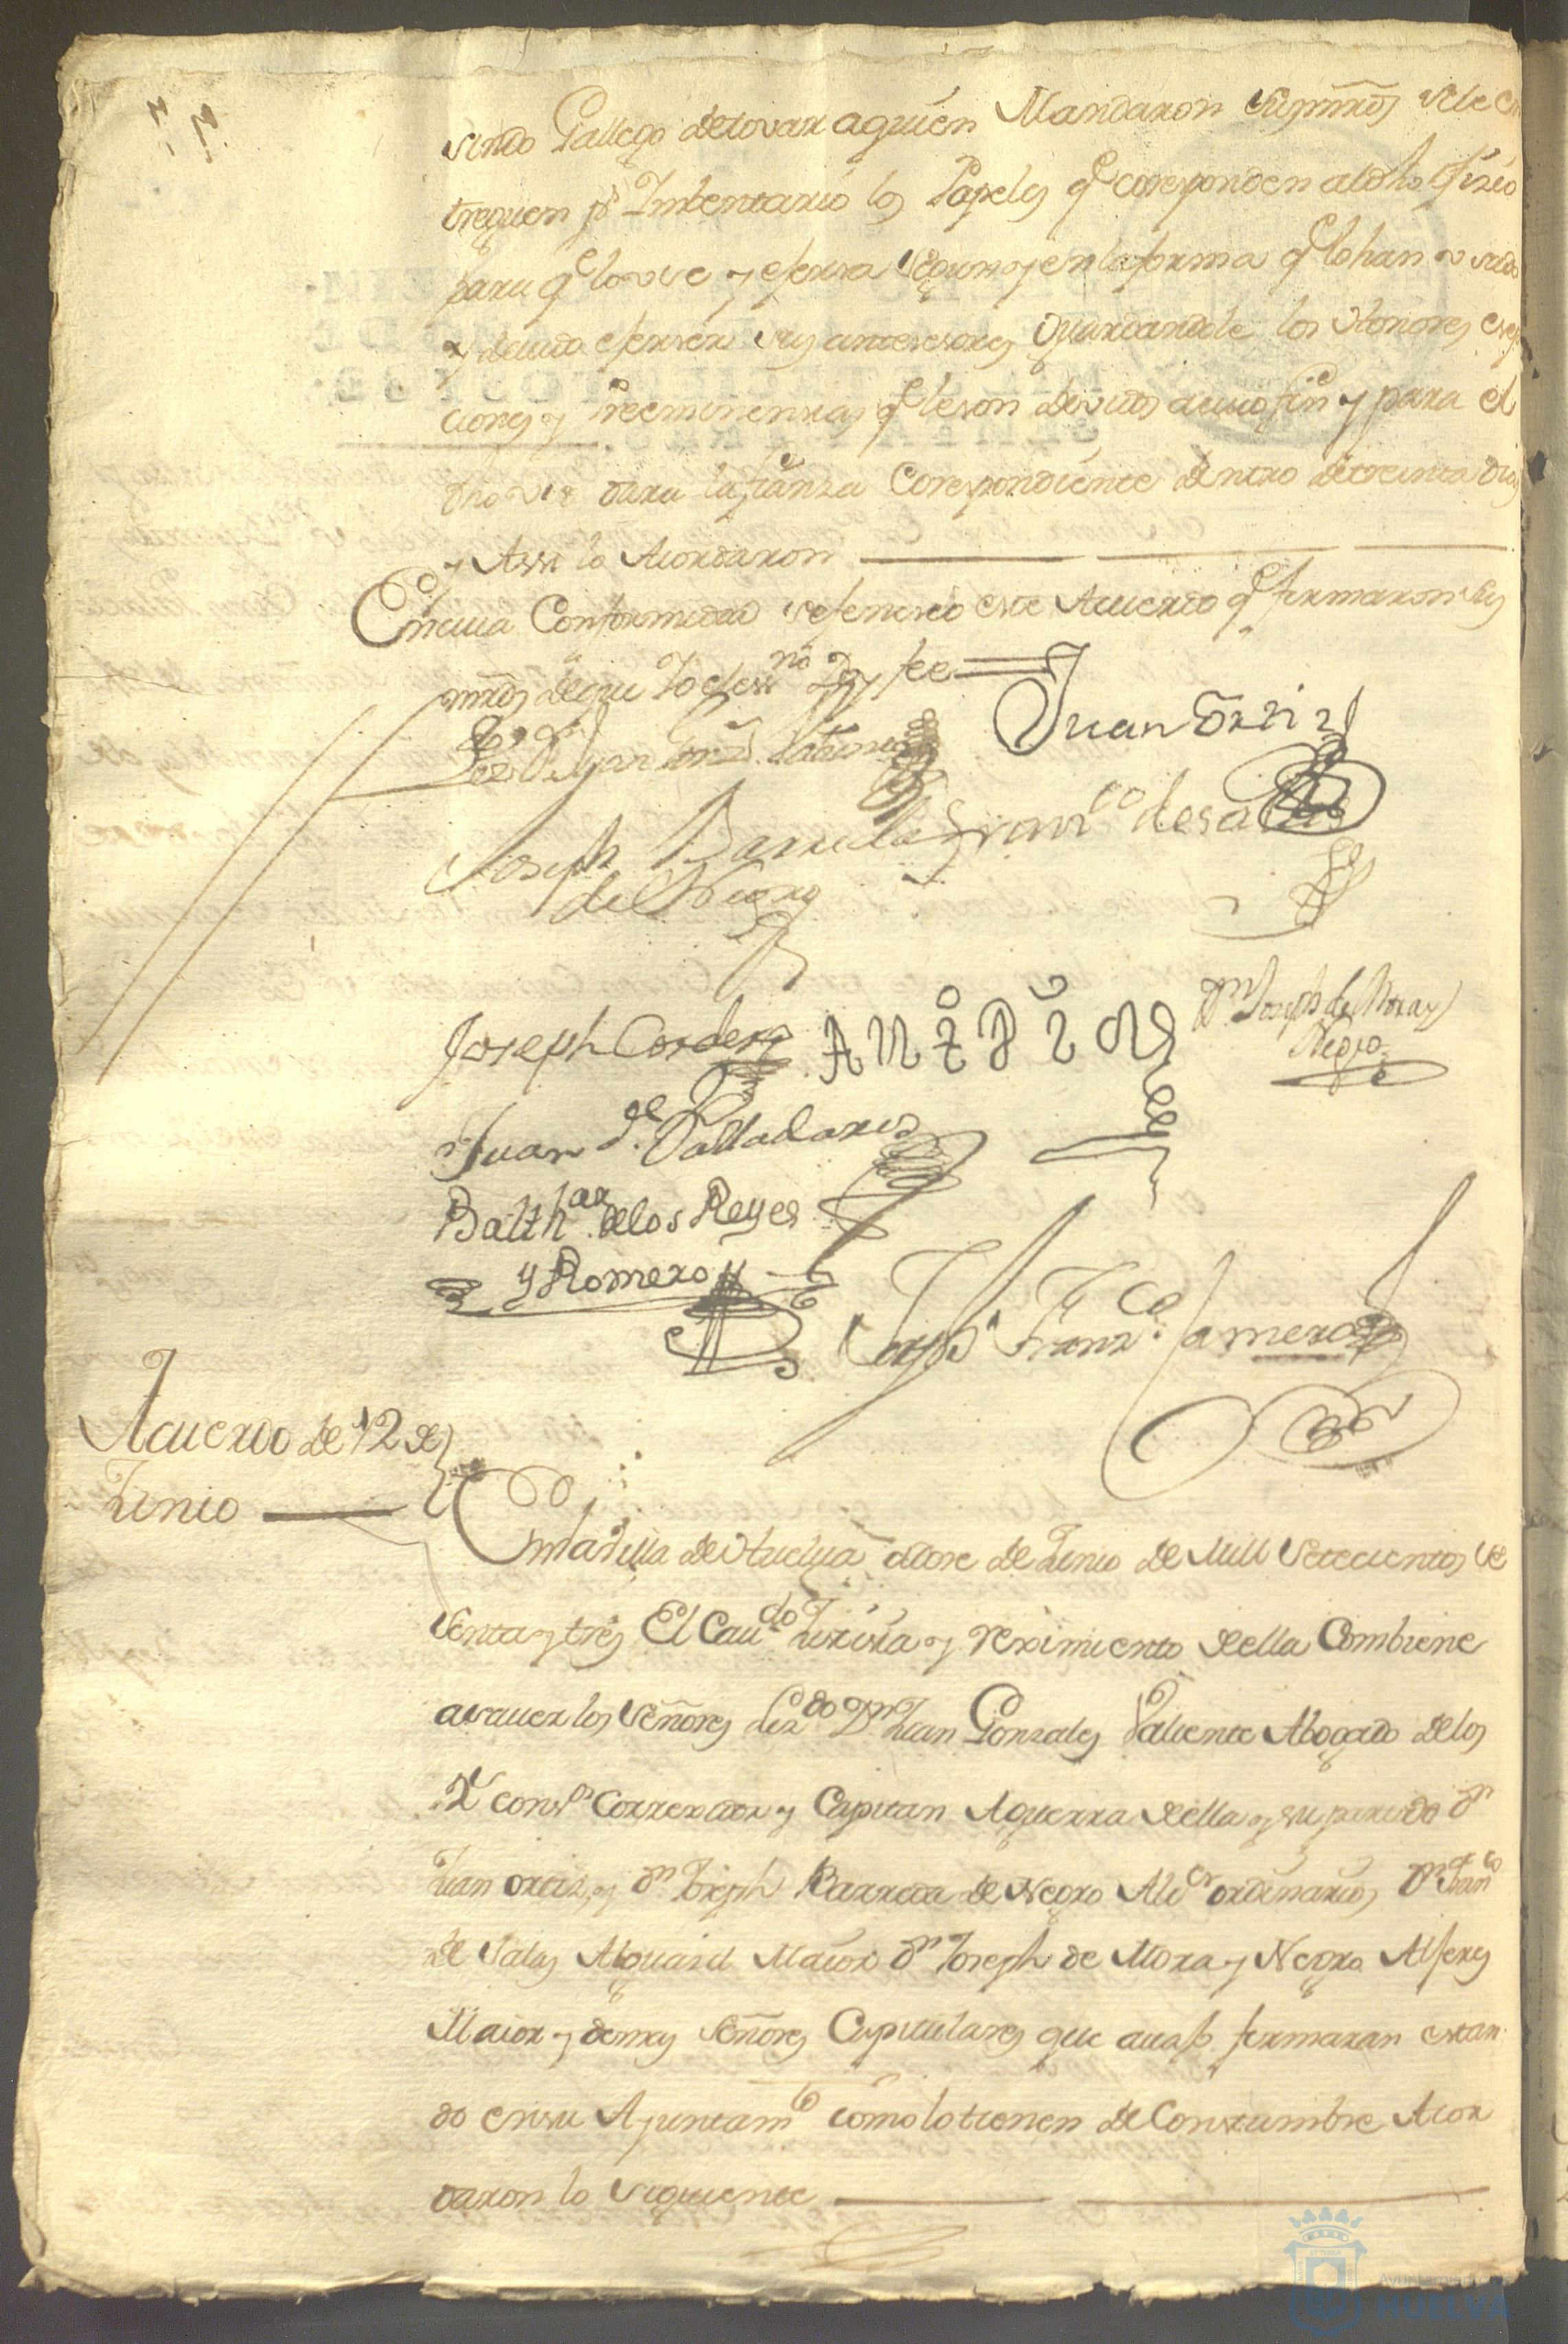 sindo Gallego de tovar a quien Mandaron sus mrds se le en
treguen pr Imbentario los Papeles qe coresponden al dho ofizio
para qe lo use y eferza segun y en la forma qe lo han usado
y devido eferser sus antesesores Guardandole los Honores esep
ciones y preeminenzias qe le son devidos a cuio fin y para el
dho uso dara la fianza Corespondiente dentro de treinta dias
y Assi lo Acordaron
En cuia Conformidad se fenesio este Acuerdo qe firmaron sus
mrds de que Yo el essno Doy fee
Juan Ortiz
Joseph Barreda Franco de salas
de Negro
Joseph Cordero
Dn Joseph de Mora y
Negro
Juan de Valladares
Balthar de los Reyes
y Romero
Joseph Franco Camero
Acuerdo de 12 de
Junio
En la Villa de Huelva a doze de Junio de Mill Setecientos se
senta y tres El Cavdo Justisia y reximiento de ella Combiene
a saver los Señores Lizdo Dn Juan Gonzales Valiente Abogado de los
Rs consos Correxidor y Capitan Aguerra de ella y su partido Dn
Juan ortiz, y Dn Joseph Barreda de Negro Alces ordinarios Dn Franco
de Salas Alguasil Maior Dn Joseph de Mora y Negro Alferes
Maior y demas Señores Capitulares que avaxo firmaran estan
do en su Ayuntamto como lo tienen de Constumbre Acor
daron lo siguiente
Ayuntamiento de
HUELVA